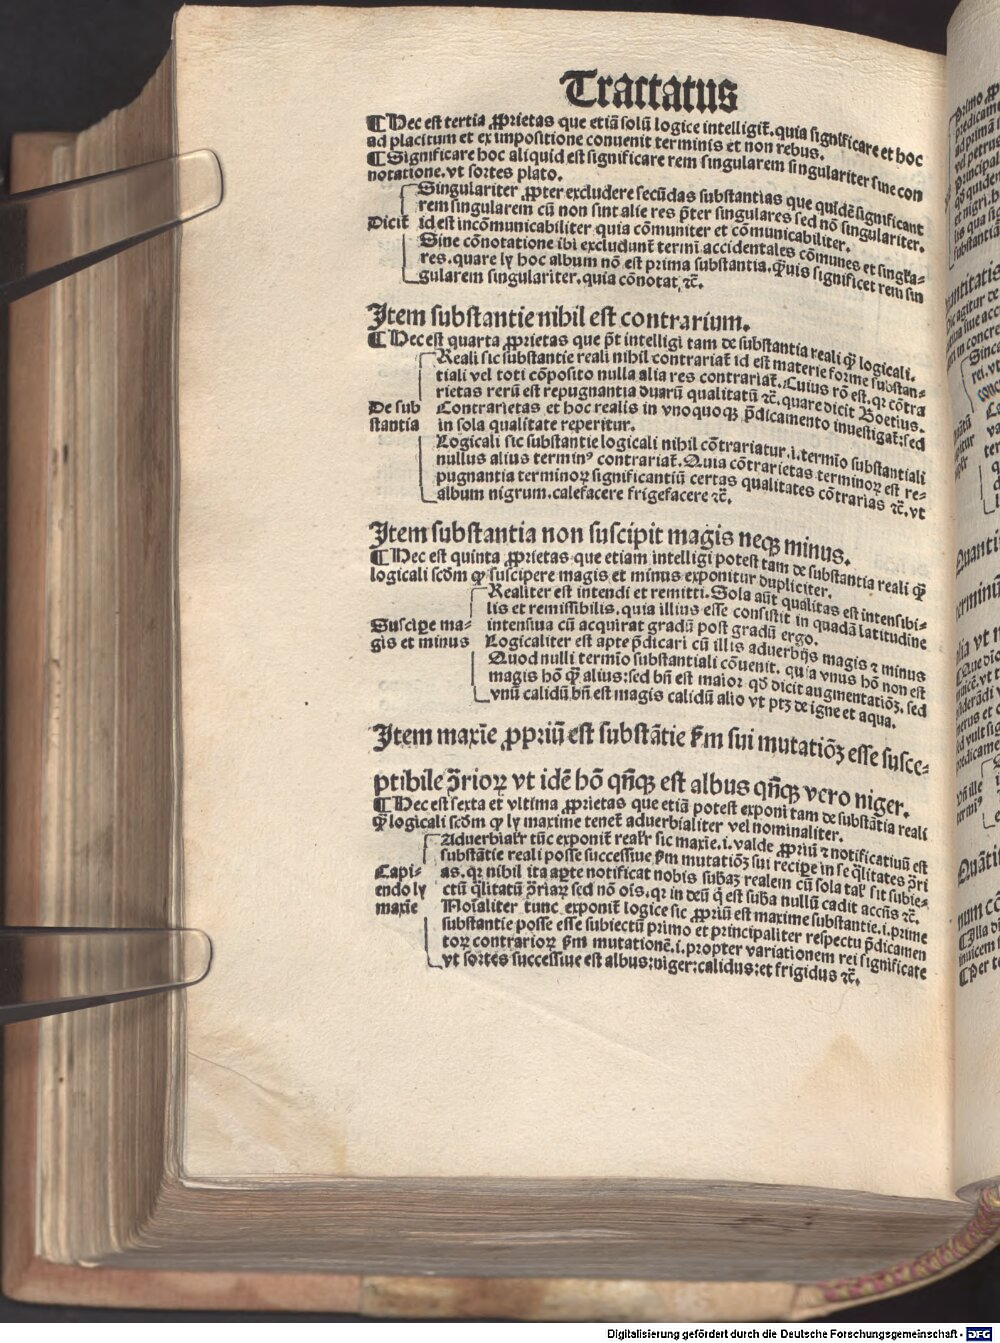 Tractatus
¶ Hec est tertia ꝓprietas que etiã solũ logice intelligit̃. quia significare et hoc
ad placitum et ex impositione conuenit terminis et non rebus.
¶ Significare hoc aliquid est significare rem singularem singulariter sine con
notatione. vt sortes plato.
Singulariter ꝓpter excludere secũdas substantias que quidẽ significant
rem singularem cũ non sint alie res p̃ter singulares sed nõ singulariter.
Dicit̃ id est incõmunicabiliter quia cõmuniter et cõmunicabiliter.
Sine cõnotatione ibi excludunt̃ termini accidentales cõmunes et singĺa-
res. quare ly hoc album nõ est prima substantia. q̃uis significet rem sin
gularem singulariter. quia cõnotat ⁊c̃.
Item substantie nihil est contrarium.
¶ Hec est quarta ꝓprietas que põt intelligi tam de substantia reali q̃ logicali.
Reali sic substantie reali nihil contrariat̃ id est materie forme substan-
tiali vel toti cõposito nulla alia res contrariat̃. Cuius rõ est. qr cõtra
rietas rerũ est repugnantia duarũ qualitatũ ⁊c̃. quare dicit Boetius.
De sub
stantia
Contrarietas et hoc realis in vnoquoqꝫ p̃dicamento inuestigat̃: sed
in sola qualitate reperitur.
Logicali sic substantie logicali nihil cõtrariatur .i. termĩo substantiali
nullus alius terminꝰ contrariat̃. Quia cõtrarietas terminoꝝ est re-
pugnantia terminoꝝ significantiũ certas qualitates cõtrarias ⁊c̃. vt
album nigrum. calefacere frigefacere ⁊c̃.
Item substantia non suscipit magis neqꝫ minus.
¶ Hec est quinta ꝓprietas que etiam intelligi potest tam de substantia reali q̃
logicali scd̃m ꝙ suscipere magis et minus exponitur dupliciter.
Realiter est intendi et remitti. Sola aũt qualitas est intensibi-
lis et remissibilis. quia illius esse consistit in quadã latitudine
Suscipe ma-
gis et minus
intensiua cũ acquirat gradũ post gradũ ergo.
Logicaliter est apte p̃dicari cũ illis aduerbijs magis ⁊ minus
Quod nulli termĩo substantiali cõuenit. quia vnus hõ non est
magis hõ q̃ alius: sed bñ est maior qd̃ dicit augmentatiõꝫ. sed
vnũ calidũ bñ est magis calidũ alio vt ptꝫ de igne et aqua.
Item maxĩe ꝓpriũ est substãtie ẜm sui mutatiõꝫ esse susce-
ptibile ↄ̃rioꝝ vt idẽ hõ qñqꝫ est albus qñqꝫ vero niger.
¶ Hec est sexta et vltima ꝓprietas que etiã potest exponi tam de substãtia reali
q̃ logicali scd̃m ꝙ ly maxime tenet̃ aduerbialiter vel nominaliter.
Aduerbialr̃ tũc exponit̃ realr̃ sic maxĩe .i. valde ꝓpriũ ⁊ notificatiuũ est
substãtie reali posse successiue ẜm mutatiõꝫ sui recipe in se q̃litates ↄ̃ri
Capi-
endo ly
maxĩe
as. qr nihil ita apte notificat nobis sub̃aꝫ realem cũ sola tal' sit subie-
ctũ q̃litatũ ↄ̃riaꝝ sed nõ oĩs. qr in deũ q̃ est sub̃a nullũ cadit accñs ⁊c̃.
Noĩaliter tunc exponit̃ logice sic ꝓpriũ est maxime substantie .i. prime
substantie posse esse subiectũ primo et principaliter respectu p̃dicamen
toꝝ contrarioꝝ ẜm mutationẽ .i. propter variationem rei significate
vt sortes successiue est albus: niger: calidus: et frigidus ⁊c̃.
Digitalisierung gefördert durch die Deutsche Forschungsgemeinschaft - DFG